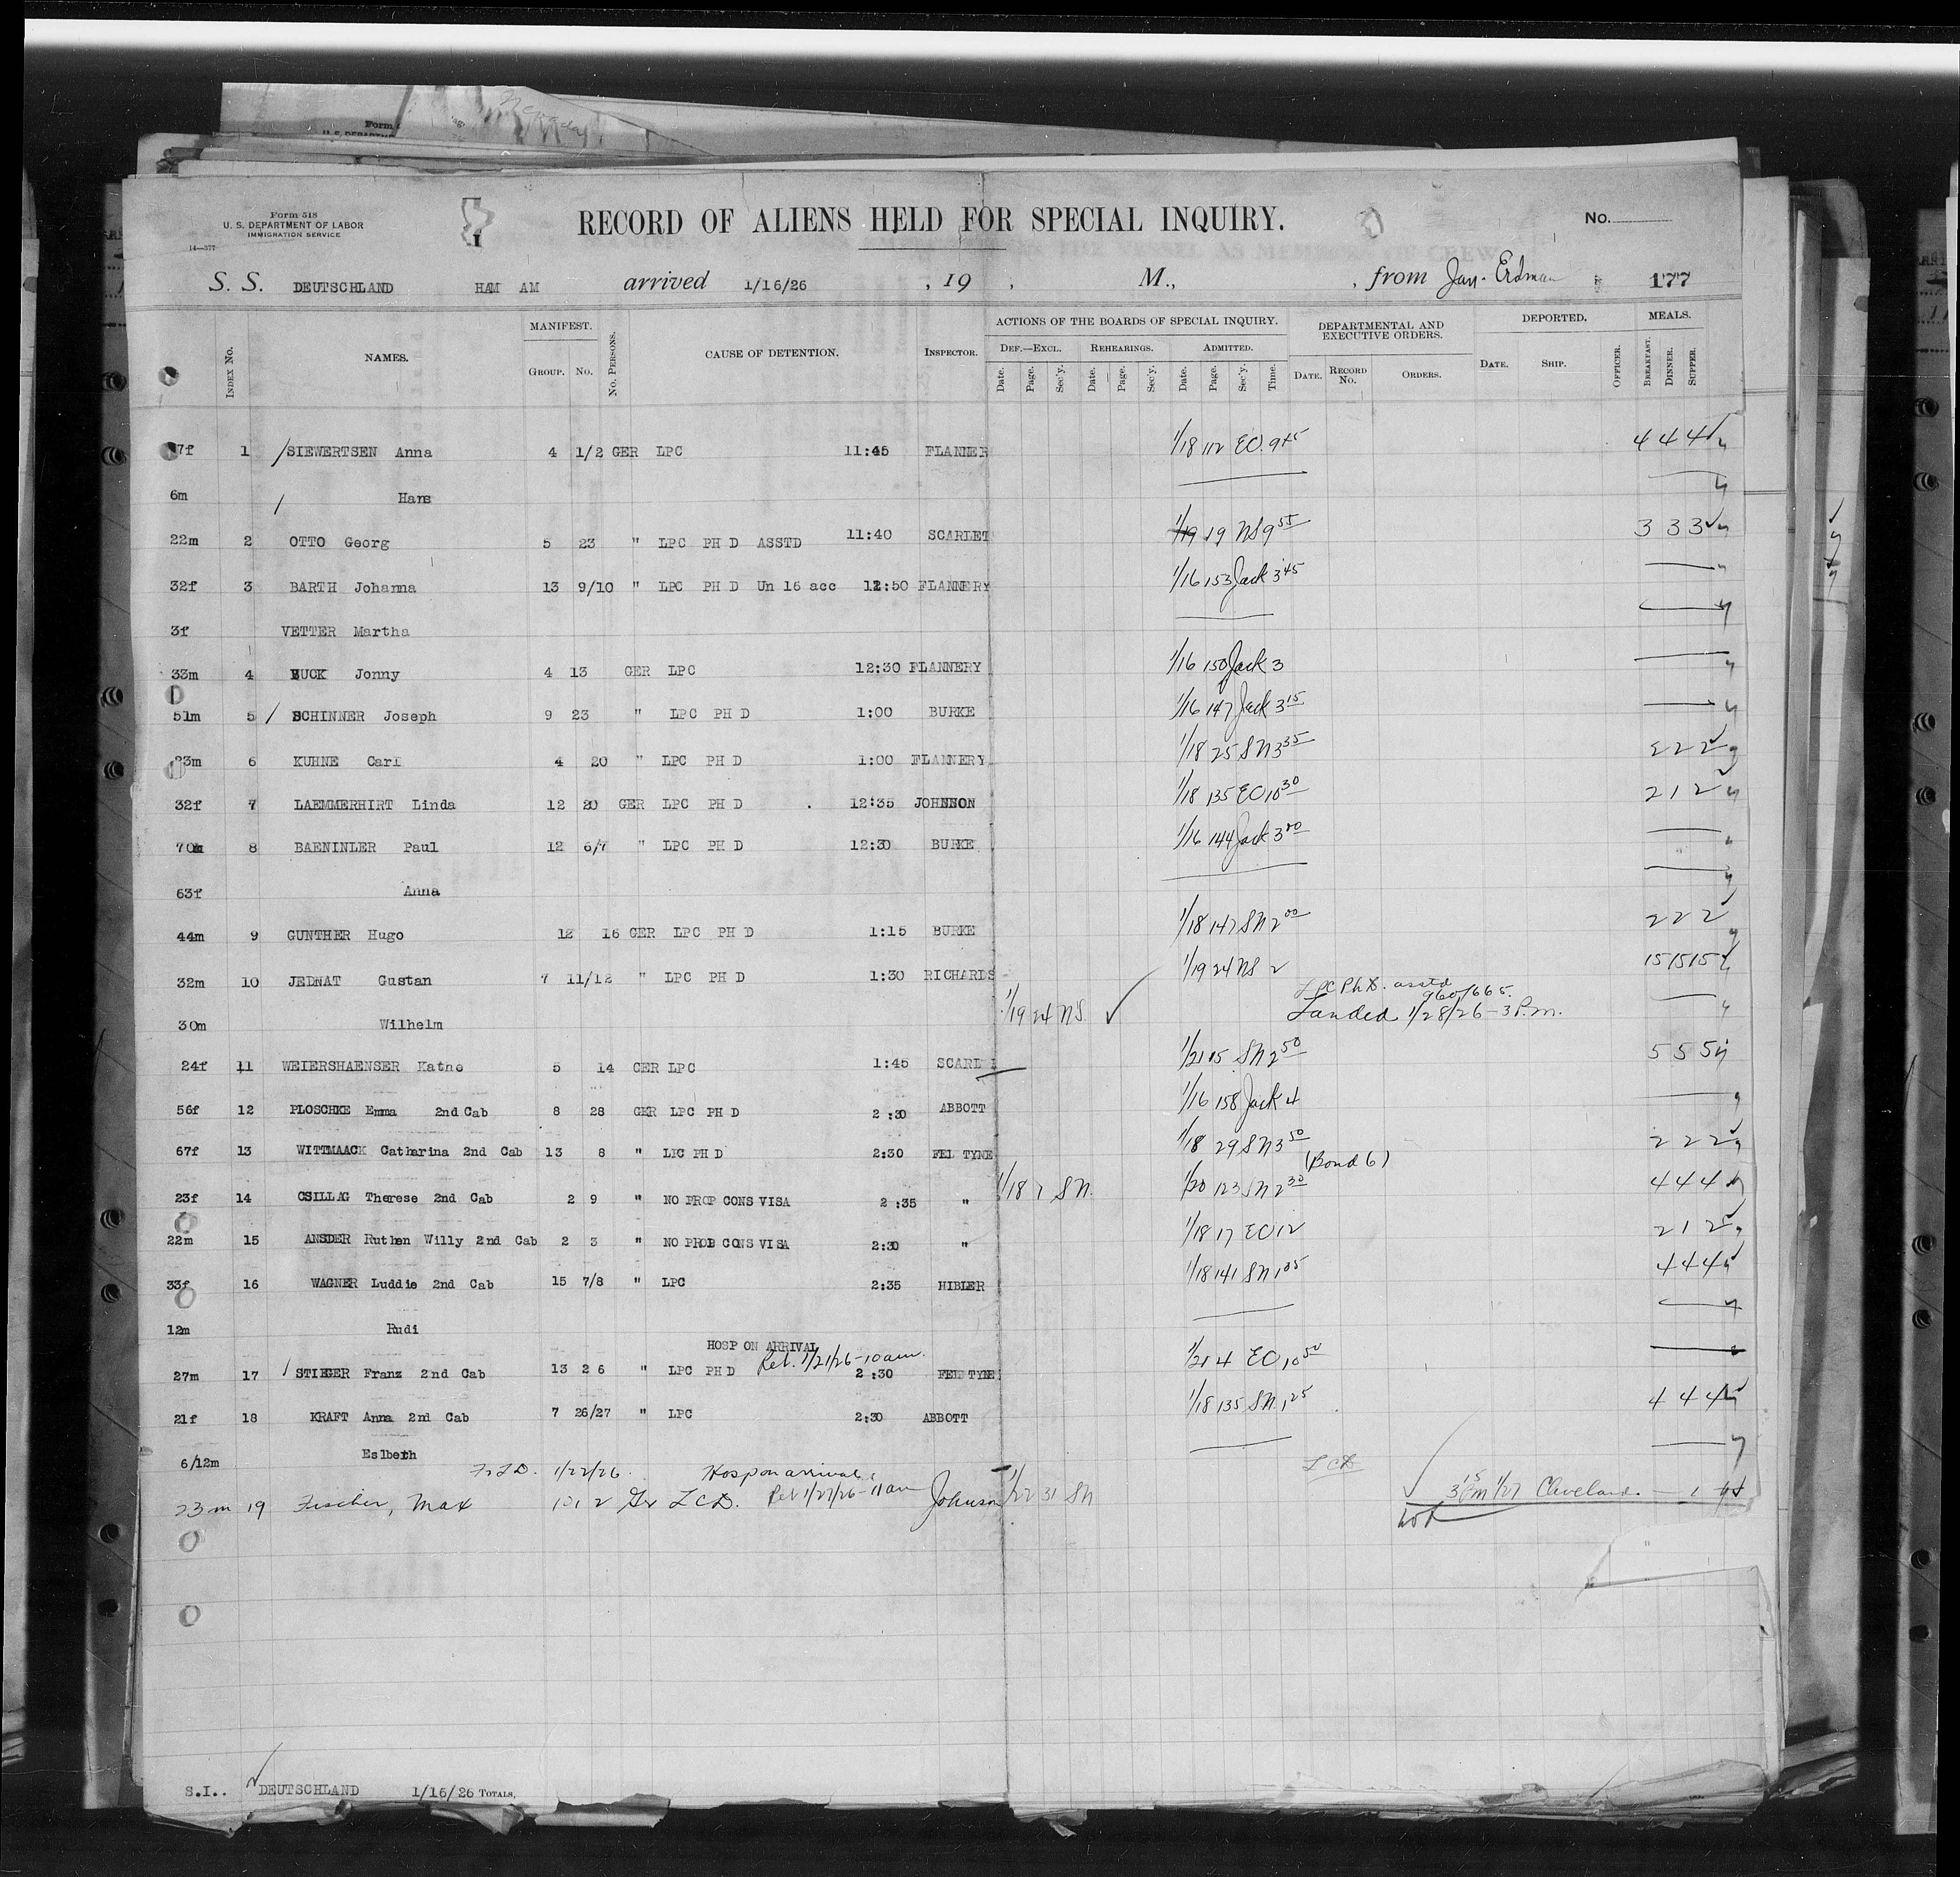 Form 518
U. S. DEPARTMENT OF LABOR
IMMIGRATION SERVICE
14—377
RECORD OF ALIENS HELD FOR SPECIAL INQUIRY.
No.
S. S. DEUTSCHLAND HAM AM arrived 1/16/26 , 19 , M., , from Jan. Erdman 177
INDEX No. NAMES. MANIFEST. GROUP. No. No. PERSONS. CAUSE OF DETENTION. INSPECTOR. ACTIONS OF THE BOARDS OF SPECIAL INQUIRY. DEPARTMENTAL AND EXECUTIVE ORDERS. DEPORTED. MEALS.
DEF.—EXCL. REHEARINGS. ADMITTED.
Date. Page. Sec'y. Date. Page. Sec'y. Date. Page. Sec'y. Time. DATE. RECORD No. ORDERS. DATE. SHIP. OFFICER. BREAKFAST. DINNER. SUPPER.
7f 1 / SIEWERTSEN Anna 4 1/2 GER LPC 11:45 FLANNER 1/18 112 EO. 9 45 4 4 4
6m / Hans
22m 2 OTTO Georg 5 23 " LPC PH D ASSTD 11:40 SCARLET 1/19 19 NS 9 55 3 3 3
32f 3 BARTH Johanna 13 9/10 " LPC PH D Un 16 acc 12:50 FLANNERY 1/16 153 Jack 3 45
3f VETTER Martha
33m 4 BUCK Jonny 4 13 GER LPC 12:30 FLANNERY 1/16 150 Jack 3
51m 5 / SCHINNER Joseph 9 23 " LPC PH D 1:00 BURKE 1/16 147 Jack 3 15
23m 6 KUHNE Carl 4 20 " LPC PH D 1:00 FLANNERY 1/18 25 SN 3 35 2 2 2
32f 7 LAEMMERHIRT Linda 12 20 GER LPC PH D 12:35 JOHNSON 1/18 135 EO 10 30 2 1 2
70m 8 BAENINLER Paul 12 6/7 " LPC PH D 12:30 BURKE 1/16 144 Jack 3 00
63f Anna
44m 9 GUNTHER Hugo 12 16 GER LPC PH D 1:15 BURKE 1/18 147 SN 2 00 2 2 2
32m 10 JEDWAT Gustan 7 11/12 " LPC PH D 1:30 RICHARDS 1/19 24 NS 2 15 15 15
LPC Ph D. asstd 960/665.
30m Wilhelm 1/19 24 NS. ✓ Landed 1/28/26 - 3 P.m.
24f 11 WEIERSHAENSER Kathe 5 14 GER LPC 1:45 SCARL 1/21 15 SN 2 50 5 5 5
56f 12 PLOSCHKE Emma 2nd Cab 8 28 GER LPC PH D 2:30 ABBOTT 1/16 158 Jack 4
67f 13 WITTMAACK Catharina 2nd Cab 13 8 " LPC PH D 2:30 FEL TYNE 1/18 29 SN 3 50 2 2 2
(Bond 6)
23f 14 CSILLAG Therese 2nd Cab 2 9 " NO PROP CONS VISA 2:35 " 1/18 7 SN. 1/20 123 SN 2 30 4 4 4
22m 15 ANSDER Ruthen Willy 2nd Cab 2 3 " NO PROP CONS VISA 2:30 " 1/18 17 EO 12 2 1 2
33f 16 WAGNER Luddie 2nd Cab 15 7/8 " LPC 2:35 HIBLER 1/18 141 SN 1 05 4 4 4
12m Rudi
HOSP ON ARRIVAL
27m 17 / STIEGER Franz 2nd Cab 13 26 " LPC PH D Rel. 1/21/26 - 10 am. 2:30 FEL TYNE 1/21 4 EO 10 50
21f 18 KRAFT Anna 2nd Cab 7 26/27 " LPC 2:30 ABBOTT 1/18 135 SN. 1 25 4 4 4
6/12m Eslbeth
1/22/26. Hosp on arrival. LCD
23m 19 Fischer, Max 10 12 Ger LCD. Rel 1/27/26 - 11 am Johnson 1/22 31 SN 3 15 Pm 1/27 Cleveland. — 1
S.I.. ✓ DEUTSCHLAND 1/16/26 TOTALS,